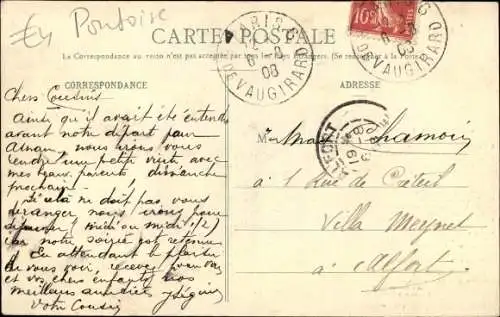 €4 Pontoise
CARTE POSTALE
La Correspondance au recto n'est pas acceptée par tous les pays étrangers. (Se renseigner à la Poste)
CORRESPONDANCE
ADRESSE
PARIS
DE VAUGIRARD
08
10c
DE VAUGIRARD
08
Chers Cousins
Ainsi qu'il avait été entendu
avant notre départ pour
nous irons vous
rendre une petite visite avec
mes beaux parents, dimanche
prochain.
Si cela ne doit pas vous
déranger nous irons pour
déjeuner (midi ou midi 1/2)
car notre soirée est retenue
En attendant le plaisir
de vous voir, recevez bien vous
et vos chers enfants nos
meilleures amitiés
Votre Cousin
M Chamoin
à 1 Rue de Créteil
Villa Meynet
à Alfort